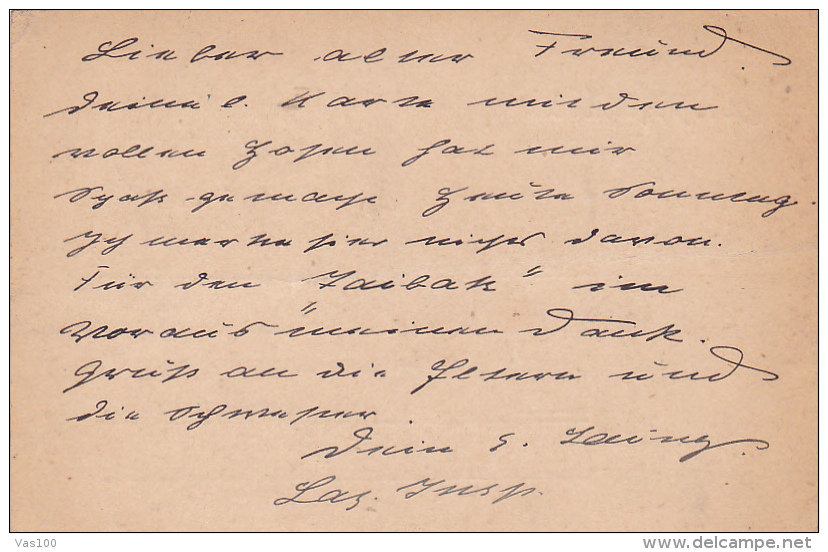 Lieber alter Freund.
Deine l. Karte mit den
vollen Hosen hat mir
Spaß gemacht. Heute Sonntag.
Ich merke hier nichts davon.
Für den "Taibak" im
Voraus meinen Dank.
Gruß an die Eltern und
die Schwester.
Dein
Laz. Insp.
Vas100
delcampe.net